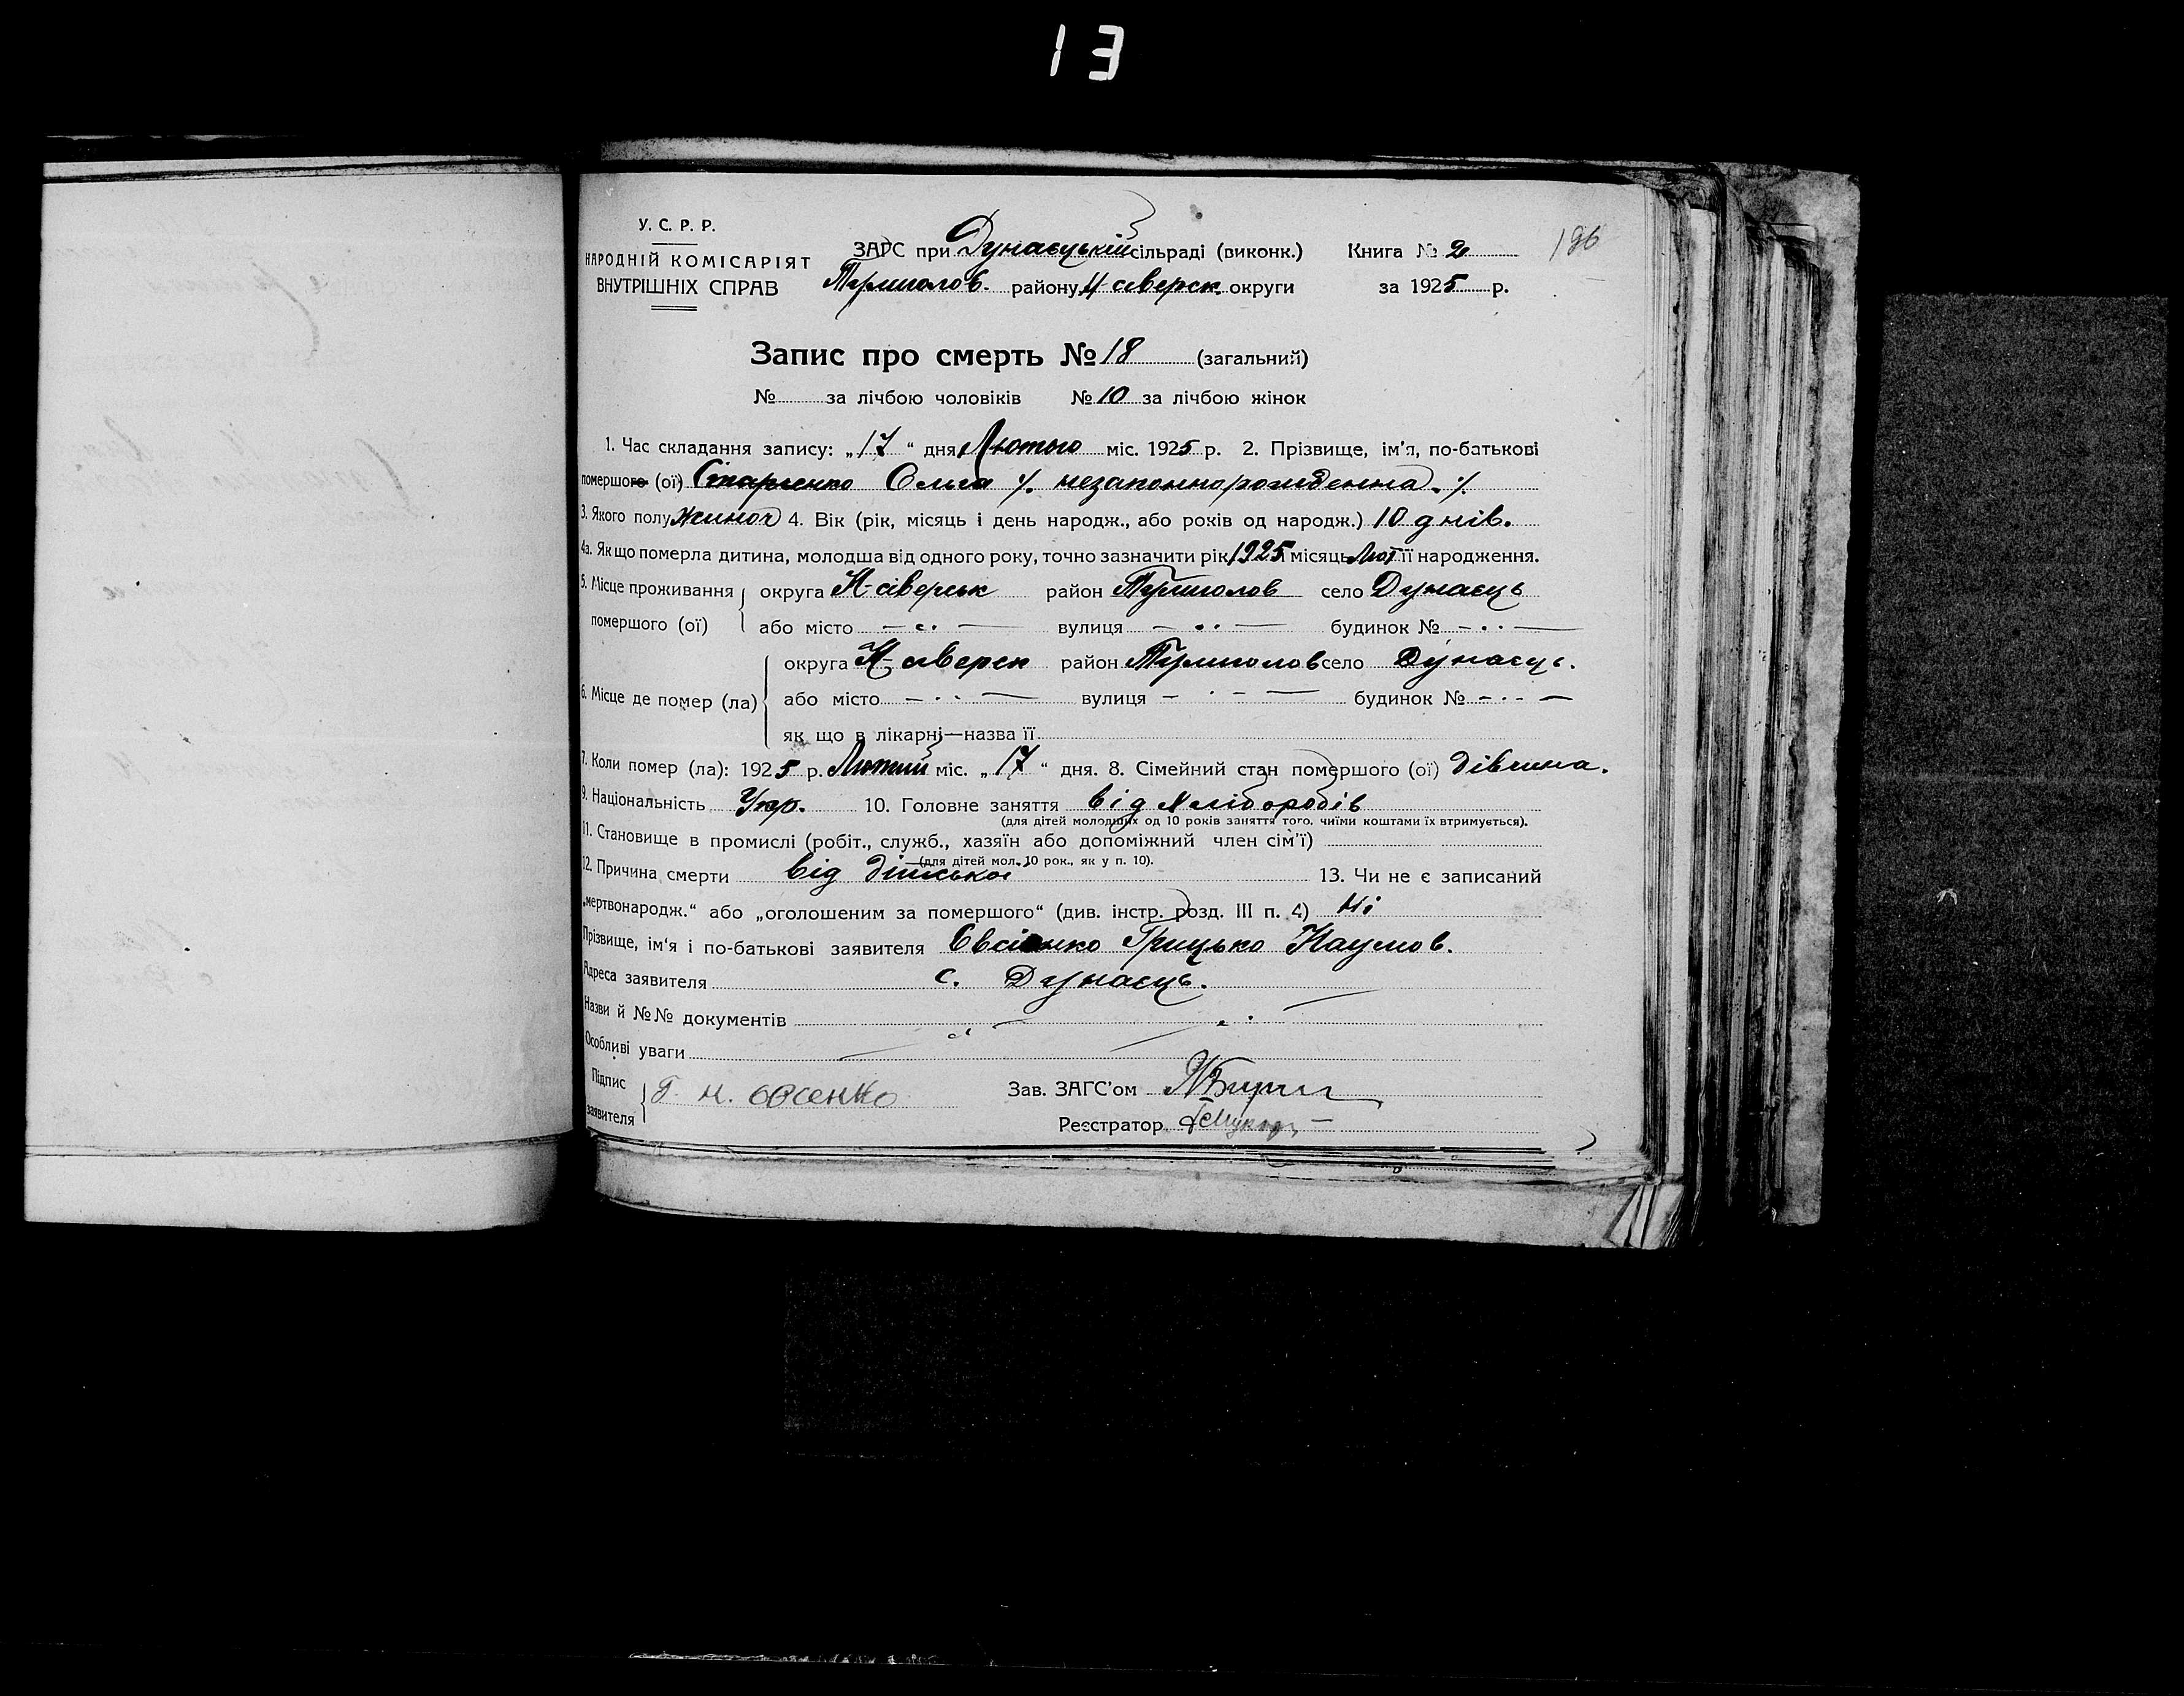 13
У. С. Р. Р.
НАРОДНІЙ КОМІСАРІЯТ
ВНУТРІШНІХ СПРАВ
ЗАГС при Дунаєцькій сільраді (виконк.) Книга № 2
196
району Н сіверск. округи за 1925 р.
Запис про смерть № 18 (загальний)
№ за лічбою чоловіків № 10 за лічбою жінок
1. Час складання запису: „17“ дня Лютого міс. 1925 р. 2. Прізвище, ім'я, по-батькові
помершого (ої) Ольга ·/. незаконнорожденна ·/.
3. Якого полу жиноч 4. Вік (рік, місяць і день народж., або років од народж.) 10 днів.
4а. Як що померла дитина, молодша від одного року, точно зазначити рік 1925 місяць Лют її народження.
5. Місце проживання помершого (ої) округа Н-сіверськ район село Дунаєць
або місто вулиця будинок №
6. Місце де помер (ла) округа Н-сіверск район село Дунаєць.
або місто вулиця будинок №
як що в лікарні—назва її
7. Коли помер (ла): 1925 р. Лютий міс. „17“ дня. 8. Сімейний стан помершого (ої) дівчина.
9. Національність Укр. 10. Головне заняття від хліборобів
(для дітей молодших од 10 років заняття того. чиїми коштами їх втримується).
11. Становище в промислі (робіт., служб., хазяїн або допоміжний член сім'ї)
(для дітей мол. 10 рок., як у п. 10).
12. Причина смерти від 13. Чи не є записаний
„мертвонародж.“ або „оголошеним за помершого“ (див. інстр. розд. III п. 4) Ні
Прізвище, ім'я і по-батькові заявителя Овсієнко Грицько Наумов.
Адреса заявителя с. Дунаєць.
Назви й №№ документів
Особливі уваги
Підпис заявителя Г. Н. Овсенко Зав. ЗАГС'ом
Реєстратор